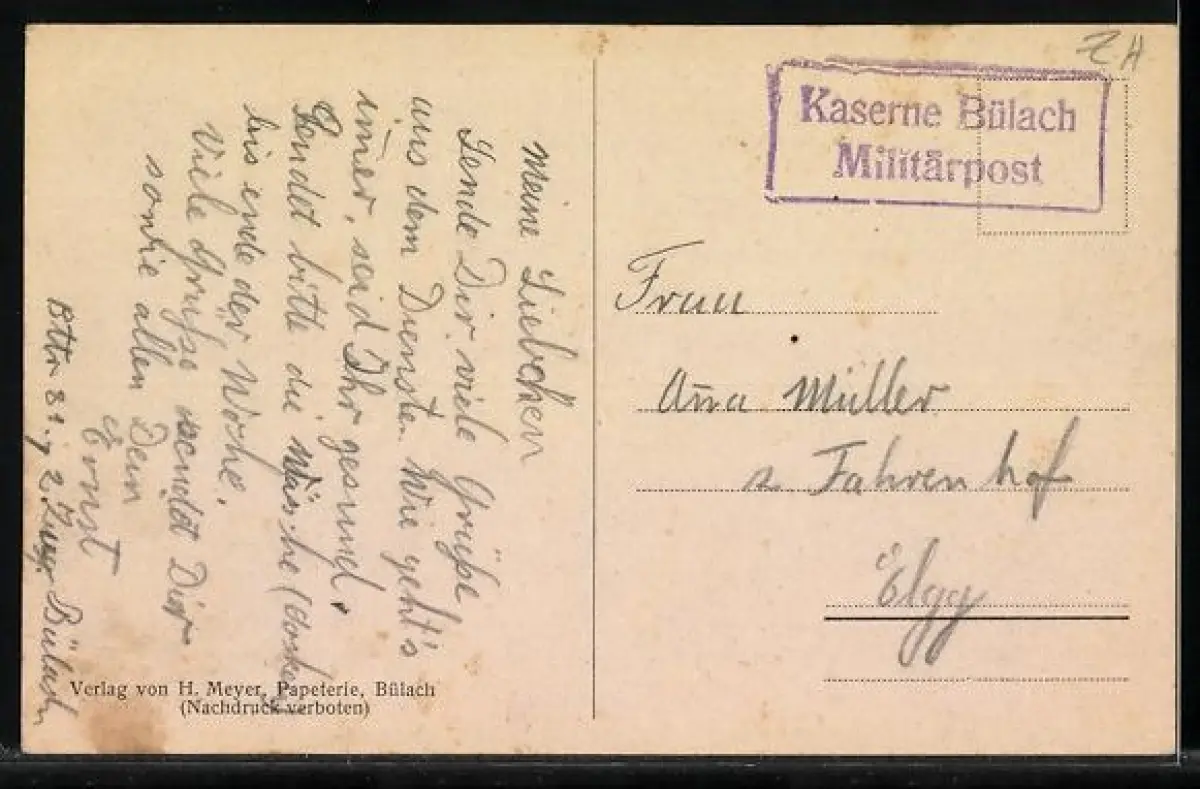 Meine Liebchen
Sende Dir viele Grüße
aus dem Diensten. Wie geht's
imer, seid Ihr gesund.
Sendet bitte die Wäsche
bis ende der Woche.
Viele Gruße sendet Dir
sowie allen Dein
Ernst
Bttr 81. 2. Zug. Bülach
Verlag von H. Meyer, Papeterie, Bülach
(Nachdruck verboten)
ZH
Kaserne Bülach
Militärpost
Frau
Anna Müller
z Fahrenhof
Elgg